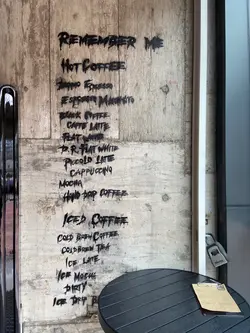 REMEMBER ME
HOT COFFEE
ESPRESSO
ESPRESSO MACCHIATO
BLACK COFFEE
CAFFE LATTE
FLAT WHITE
D.R. FLAT WHITE
PICCOLO LATTE
CAPPUCCINO
MOCHA
HAND DRIP COFFEE
ICED COFFEE
COLD BREW COFFEE
COLD BREW TEA
ICE LATE
ICE MOCHA
DIRTY
ICE DRIP